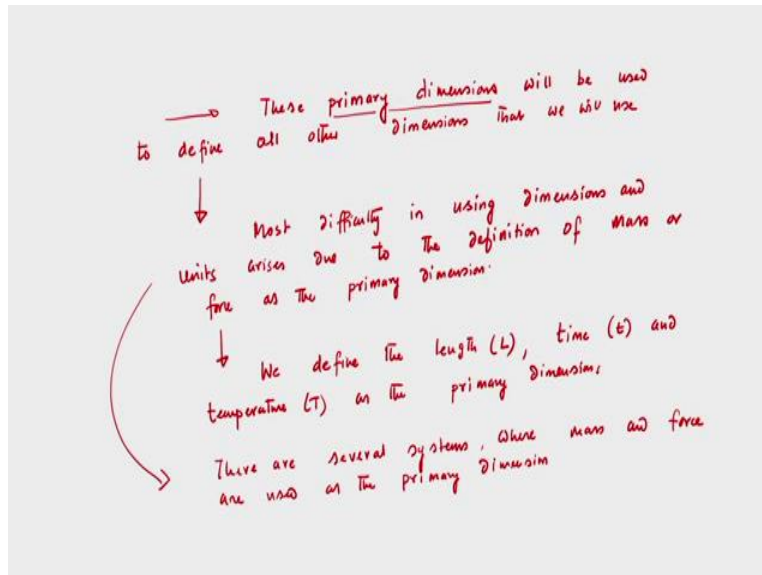 These primary dimensions will be used
to define all other dimensions that we will use
Most difficulty in using dimensions and
units arises due to the definition of mass or
force as the primary dimension.
We define the length (L), time (t) and
temperature (T) as the primary dimension.
There are several systems, where mass and force
are used as the primary dimension